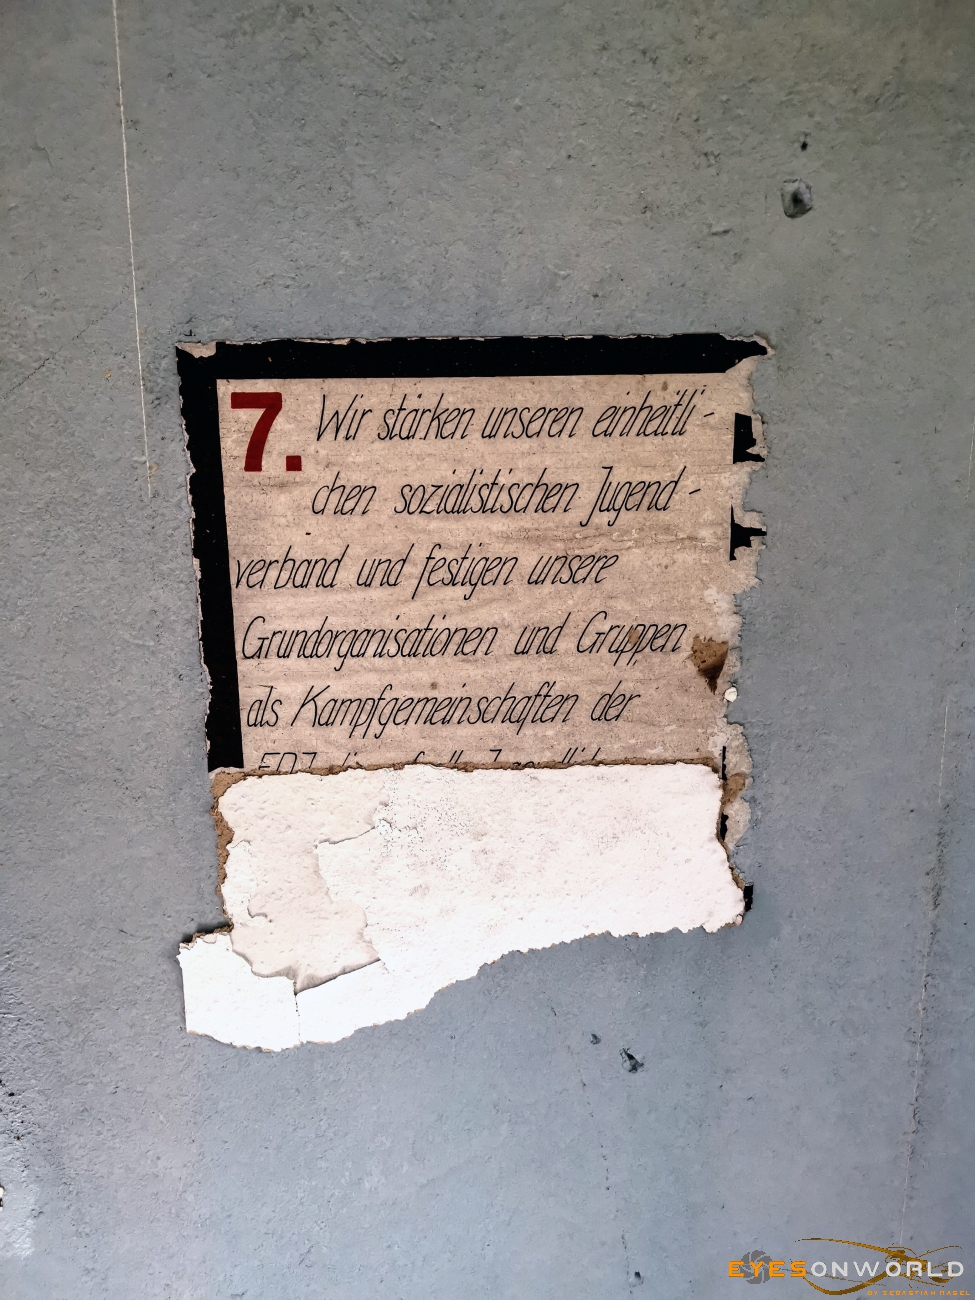 7. Wir stärken unseren einheitli-
chen sozialistischen Jugend-
verband und festigen unsere
Grundorganisationen und Gruppen
als Kampfgemeinschaften der
FDJ
EYESONWORLD
BY SEBASTIAN NAGEL